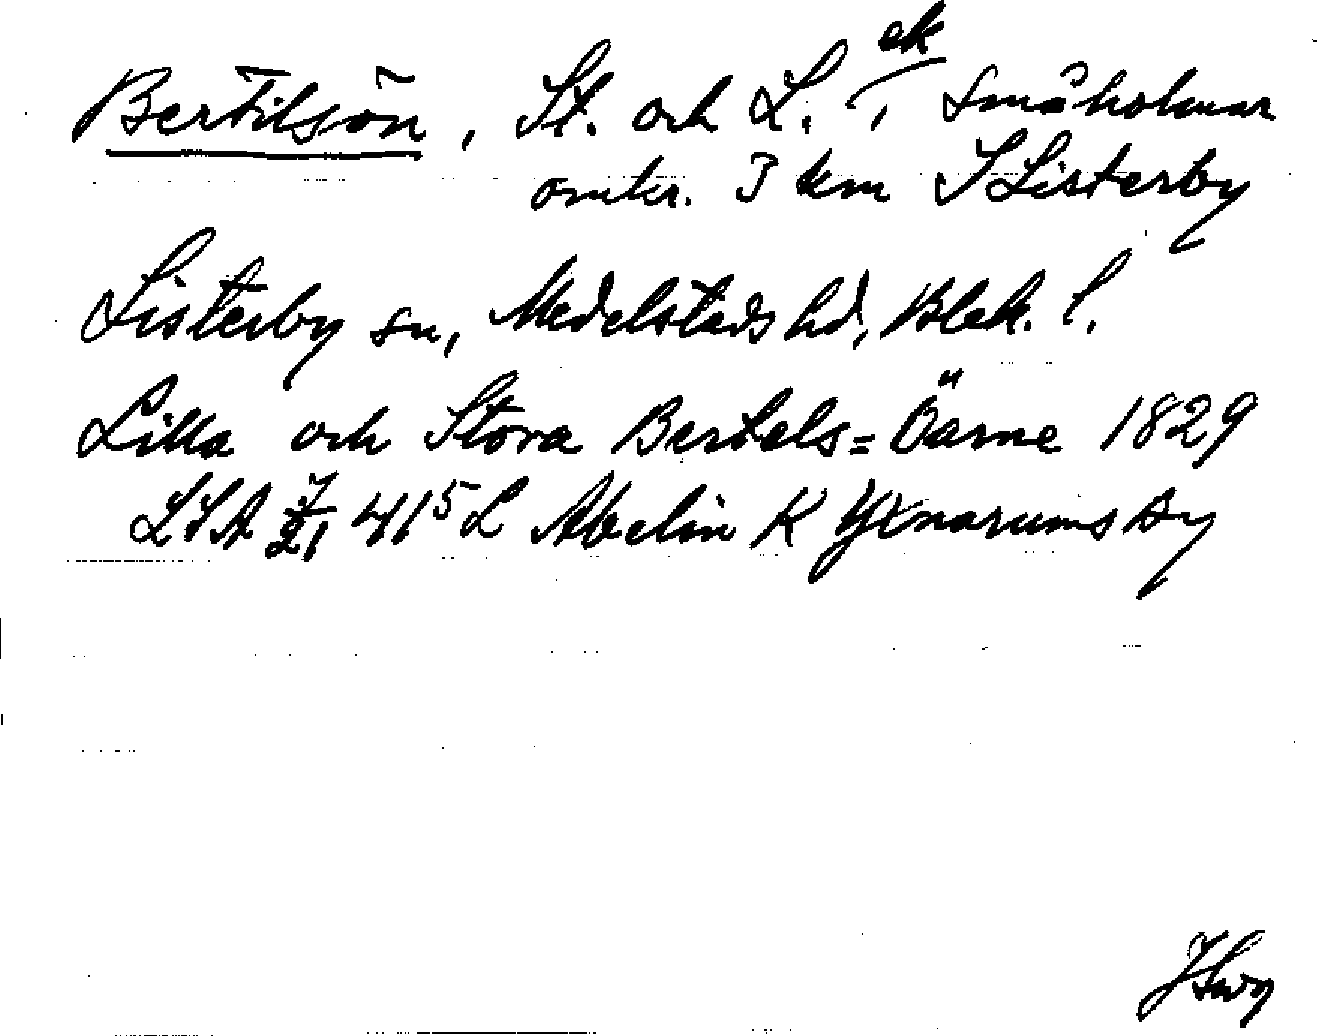 Bertilsön, St. och L. ek
/, Småholmar
omkr. 3 km S Listerby
Listerby sn, Medelstads hd, Blek. l.
Lilla och Stora Bertels=Öarne 1829
LSA 41⁵ L Abelin K Yxnarums by